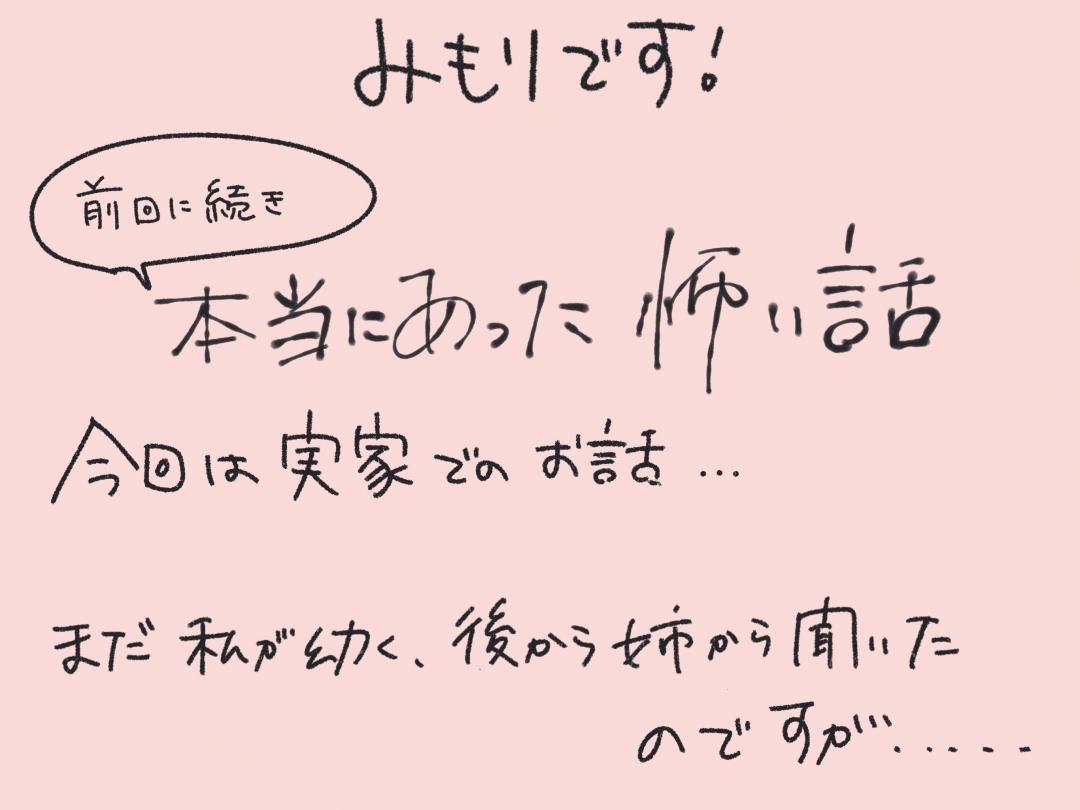 みもりです!
前回に続き
本当にあった怖い話
今回は実家でのお話…
まだ私が幼く、後から姉から聞いた
のですが......